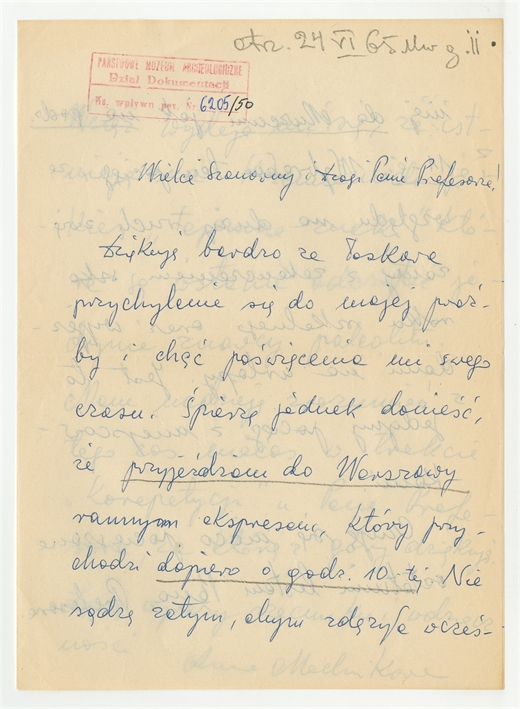 otrz. 24 VI 65
PAŃSTWOWE MUZEUM ARCHEOLOGICZNE
Dział Dokumentacji
Ks. wpływu poz. 6205/50
Wielce Szanowny i Drogi Panie Profesorze!
Dziękuję bardzo za łaskawe
przychylenie się do mojej proś-
by i chęć poświęcenia mi swego
czasu. Śpieszę jednak donieść,
że przyjeżdżam do Warszawy
rannym ekspresem, który przy-
chodzi dopiero o godz. 10-tej. Nie
sądzę zatym, abym zdążyła wcześ-